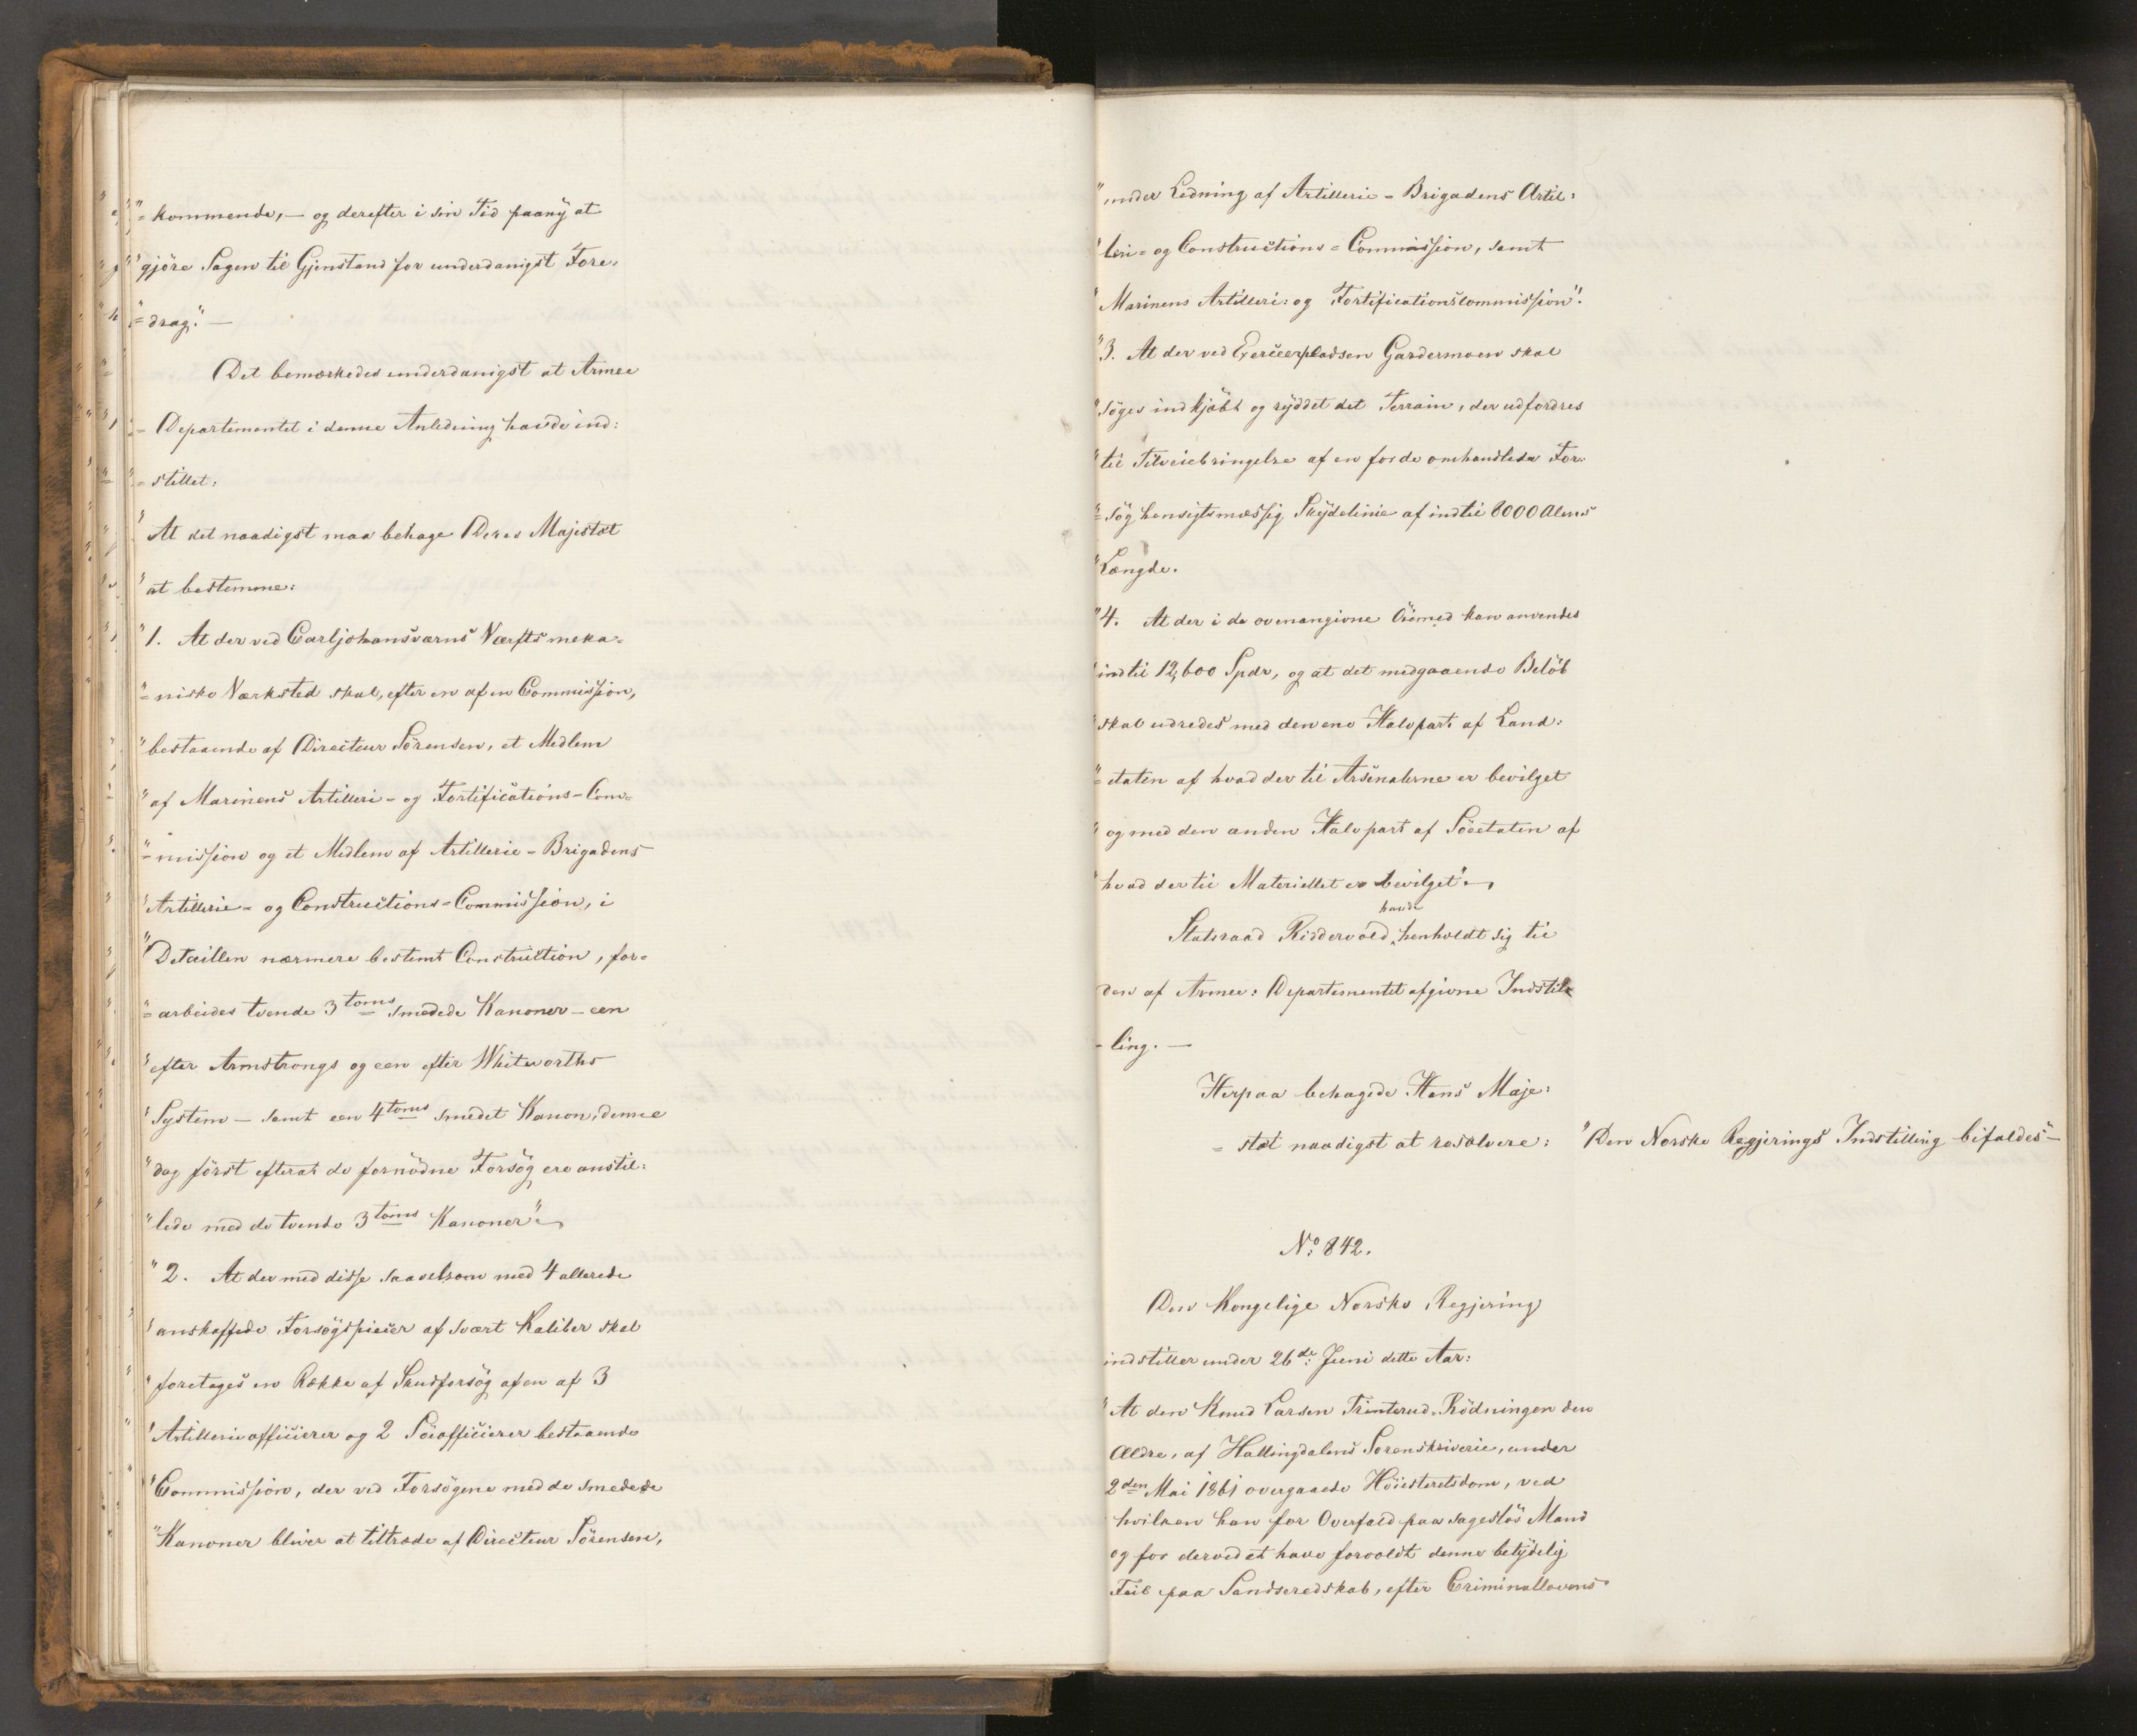 "=kommende, — og derefter i sin Tid paany at
"gjöre Sagen til Gjenstand for underdanigst Fore=
"=drag." —
Det bemærkedes underdanigst at Armee
=Departementet i denne Anledning havde ind=
=stillet:
"At det naadigst maa behage Deres Majestæt
"at bestemme:
"1. At der ved Carljohansværns Værfts meka=
"=niske Værksted skal, efter en af en Commission,
"bestaaende af Directeur Sörensen, et Medlem
"af Marinens Artilleri- og Fortifications-Com=
"=mission og et Medlem af Artillerie-Brigadens
"Artillerie- og Constructions-Commission, i
"Detaillen nærmere bestemt Construction, for=
"=arbeides tvende 3 toms smedede Kanoner — een
"efter Armstrongs og een efter Whitworths
"System — samt een 4 toms smedet Kanon, denne
"dog först efterat de fornödne Forsög ere anstil=
"lede med de tvende 3 toms Kanoner".
"2. At der med disse saavelsom med 4 allerede
"anskaffede Forsögspiecer af svært Kaliber skal
"foretages en Række af Skudforsög af en af 3
"Artillerieofficierer og 2 Söeofficierer bestaaende
"Commission, der ved Forsögene med de smedede
"Kanoner bliver at tiltræde af Directeur Sörensen,
"under Ledning af Artillerie-Brigadens Artil=
"leri- og Constructions-Commission, samt
"Marinens Artilleri- og Fortificationscommission".
"3. At der ved Exerceerpladsen Gardermoen skal
"söges indkjöbt og ryddet det Terrain, der udfordres
"til Tilveiebringelse af en for de omhandlede For=
"=sög hensigtsmæssig Skydelinie af indtil 8000 Alens
"Længde.
"4. At der i de ovenangivne Öiemed kan anvendes
"indtil 12,600 Spdr, og at det medgaaende Belöb
"skal udredes med den ene Halvpart af Land=
"=etaten af hvad der til Arsenalerne er bevilget
"og med den anden Halvpart af Söeetaten af
"hvad der til Materiellet er bevilget".
Statsraad Riddervold havde henholdt sig til
den af Armee=Departementet afgivne Indstil=
=ling. —
Herpaa behagede Hans Maje=
=stæt naadigst at resolvere: "Den Norske Regjerings Indstilling bifaldes" —
No 842.
Den Kongelige Norske Regjering
indstiller under 26de Juni dette Aar:
"At den Knud Larsen Trinterud-Rödningen den
Ældre, af Hallingdalens Sorenskriverie, under
2den Mai 1861 overgaaede Höiesteretsdom, ved
hvilken han for Overfald paa sageslös Mand
og for derved at have forvoldt denne betydelig
Feil paa Sandseredskab, efter Criminallovens